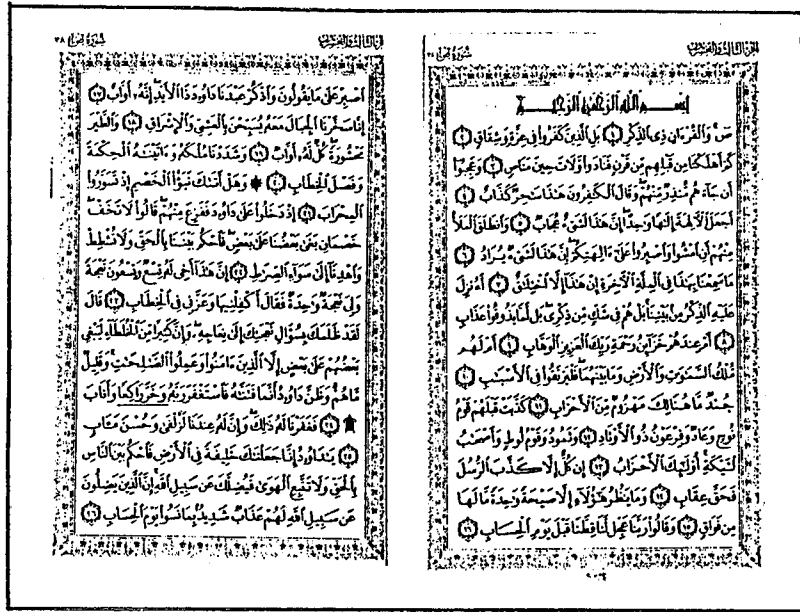 الجزء الثالث والعشرون سورة ص ٣٨
بسم الله الرحمن الرحيم
صٓ وَٱلْقُرْءَانِ ذِى ٱلذِّكْرِ ١ بَلِ ٱلَّذِينَ كَفَرُوا۟ فِى عِزَّةٍ وَشِقَاقٍ ٢
كَمْ أَهْلَكْنَا مِن قَبْلِهِم مِّن قَرْنٍ فَنَادَوا۟ وَّلَاتَ حِينَ مَنَاصٍ ٣ وَعَجِبُوٓا۟
أَن جَآءَهُم مُّنذِرٌ مِّنْهُمْ وَقَالَ ٱلْكَٰفِرُونَ هَٰذَا سَٰحِرٌ كَذَّابٌ ٤
أَجَعَلَ ٱلْءَالِهَةَ إِلَٰهًا وَٰحِدًا إِنَّ هَٰذَا لَشَىْءٌ عُجَابٌ ٥ وَٱنطَلَقَ ٱلْمَلَأُ
مِنْهُمْ أَنِ ٱمْشُوا۟ وَٱصْبِرُوا۟ عَلَىٰٓ ءَالِهَتِكُمْ إِنَّ هَٰذَا لَشَىْءٌ يُرَادُ ٦
مَا سَمِعْنَا بِهَٰذَا فِى ٱلْمِلَّةِ ٱلْءَاخِرَةِ إِنْ هَٰذَآ إِلَّا ٱخْتِلَٰقٌ ٧ أَءُنزِلَ
عَلَيْهِ ٱلذِّكْرُ مِنۢ بَيْنِنَا بَلْ هُمْ فِى شَكٍّ مِّن ذِكْرِى بَل لَّمَّا يَذُوقُوا۟ عَذَابِ
٨ أَمْ عِندَهُمْ خَزَآئِنُ رَحْمَةِ رَبِّكَ ٱلْعَزِيزِ ٱلْوَهَّابِ ٩ أَمْ لَهُم
مُّلْكُ ٱلسَّمَٰوَٰتِ وَٱلْأَرْضِ وَمَا بَيْنَهُمَا فَلْيَرْتَقُوا۟ فِى ٱلْأَسْبَٰبِ ١٠
جُندٌ مَّا هُنَالِكَ مَهْزُومٌ مِّنَ ٱلْأَحْزَابِ ١١ كَذَّبَتْ قَبْلَهُمْ قَوْمُ
نُوحٍ وَعَادٌ وَفِرْعَوْنُ ذُو ٱلْأَوْتَادِ ١٢ وَثَمُودُ وَقَوْمُ لُوطٍ وَأَصْحَٰبُ
لْـَٔيْكَةِ أُو۟لَٰٓئِكَ ٱلْأَحْزَابُ ١٣ إِن كُلٌّ إِلَّا كَذَّبَ ٱلرُّسُلَ
فَحَقَّ عِقَابِ ١٤ وَمَا يَنظُرُ هَٰٓؤُلَآءِ إِلَّا صَيْحَةً وَٰحِدَةً مَّا لَهَا
مِن فَوَاقٍ ١٥ وَقَالُوا۟ رَبَّنَا عَجِّل لَّنَا قِطَّنَا قَبْلَ يَوْمِ ٱلْحِسَابِ ١٦
الجزء الثالث والعشرون سورة ص ٣٨
ٱصْبِرْ عَلَىٰ مَا يَقُولُونَ وَٱذْكُرْ عَبْدَنَا دَاوُۥدَ ذَا ٱلْأَيْدِ إِنَّهُۥٓ أَوَّابٌ ١٧
إِنَّا سَخَّرْنَا ٱلْجِبَالَ مَعَهُۥ يُسَبِّحْنَ بِٱلْعَشِىِّ وَٱلْإِشْرَاقِ ١٨ وَٱلطَّيْرَ
مَحْشُورَةً كُلٌّ لَّهُۥٓ أَوَّابٌ ١٩ وَشَدَدْنَا مُلْكَهُۥ وَءَاتَيْنَٰهُ ٱلْحِكْمَةَ
وَفَصْلَ ٱلْخِطَابِ ٢٠ وَهَلْ أَتَىٰكَ نَبَؤُا۟ ٱلْخَصْمِ إِذْ تَسَوَّرُوا۟
ٱلْمِحْرَابَ ٢١ إِذْ دَخَلُوا۟ عَلَىٰ دَاوُۥدَ فَفَزِعَ مِنْهُمْ قَالُوا۟ لَا تَخَفْ
خَصْمَانِ بَغَىٰ بَعْضُنَا عَلَىٰ بَعْضٍ فَٱحْكُم بَيْنَنَا بِٱلْحَقِّ وَلَا تُشْطِطْ
وَٱهْدِنَآ إِلَىٰ سَوَآءِ ٱلصِّرَٰطِ ٢٢ إِنَّ هَٰذَآ أَخِى لَهُۥ تِسْعٌ وَتِسْعُونَ نَعْجَةً
وَلِىَ نَعْجَةٌ وَٰحِدَةٌ فَقَالَ أَكْفِلْنِيهَا وَعَزَّنِى فِى ٱلْخِطَابِ ٢٣ قَالَ
لَقَدْ ظَلَمَكَ بِسُؤَالِ نَعْجَتِكَ إِلَىٰ نِعَاجِهِۦ وَإِنَّ كَثِيرًا مِّنَ ٱلْخُلَطَآءِ لَيَبْغِى
بَعْضُهُمْ عَلَىٰ بَعْضٍ إِلَّا ٱلَّذِينَ ءَامَنُوا۟ وَعَمِلُوا۟ ٱلصَّٰلِحَٰتِ وَقَلِيلٌ
مَّا هُمْ وَظَنَّ دَاوُۥدُ أَنَّمَا فَتَنَّٰهُ فَٱسْتَغْفَرَ رَبَّهُۥ وَخَرَّ رَاكِعًا وَأَنَابَ
۩ ٢٤ فَغَفَرْنَا لَهُۥ ذَٰلِكَ وَإِنَّ لَهُۥ عِندَنَا لَزُلْفَىٰ وَحُسْنَ مَـَٔابٍ
٢٥ يَٰدَاوُۥدُ إِنَّا جَعَلْنَٰكَ خَلِيفَةً فِى ٱلْأَرْضِ فَٱحْكُم بَيْنَ ٱلنَّاسِ
بِٱلْحَقِّ وَلَا تَتَّبِعِ ٱلْهَوَىٰ فَيُضِلَّكَ عَن سَبِيلِ ٱللَّهِ إِنَّ ٱلَّذِينَ يَضِلُّونَ
عَن سَبِيلِ ٱللَّهِ لَهُمْ عَذَابٌ شَدِيدٌۢ بِمَا نَسُوا۟ يَوْمَ ٱلْحِسَابِ ٢٦